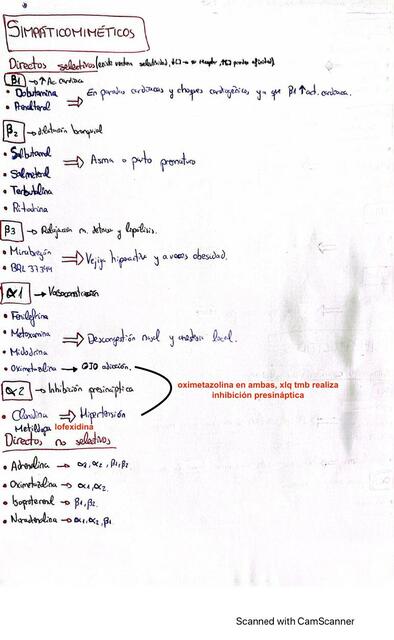 SIMPATICOMIMÉTICOS
Directos selectivos
β1 → ↑ Ac. cardiaca
• Dobutamina
⇒ En paradas cardiacas y choques cardiogénicos ya que β1 ↑ act. cardiaca.
• Prenalterol
β2 → dilatación bronquial
• Salbutamol
• Salmeterol ⇒ Asma o parto prematuro
• Terbutalina
• Ritodrina
β3 → Relajación m. detrusor y lipólisis.
• Mirabegrón
⇒ Vejiga hiperactiva y a veces obesidad.
• BRL 37344
α1 → Vasoconstricción
• Fenilefrina
• Metoxamina ⇒ Descongestión nasal y anestesia local.
• Midodrina
• Oximetazolina → OJO adicción.
α2 → Inhibición presináptica
oximetazolina en ambas, xlq tmb realiza
inhibición presináptica
• Clonidina ⇒ Hipertensión
Metildopa lofexidina
Directos no selectivos
• Adrenalina → α1, α2, β1, β2
• Oximetazolina → α1, α2.
• Isoproterenol → β1, β2.
• Noradrenalina → α1, α2, β1.
Scanned with CamScanner